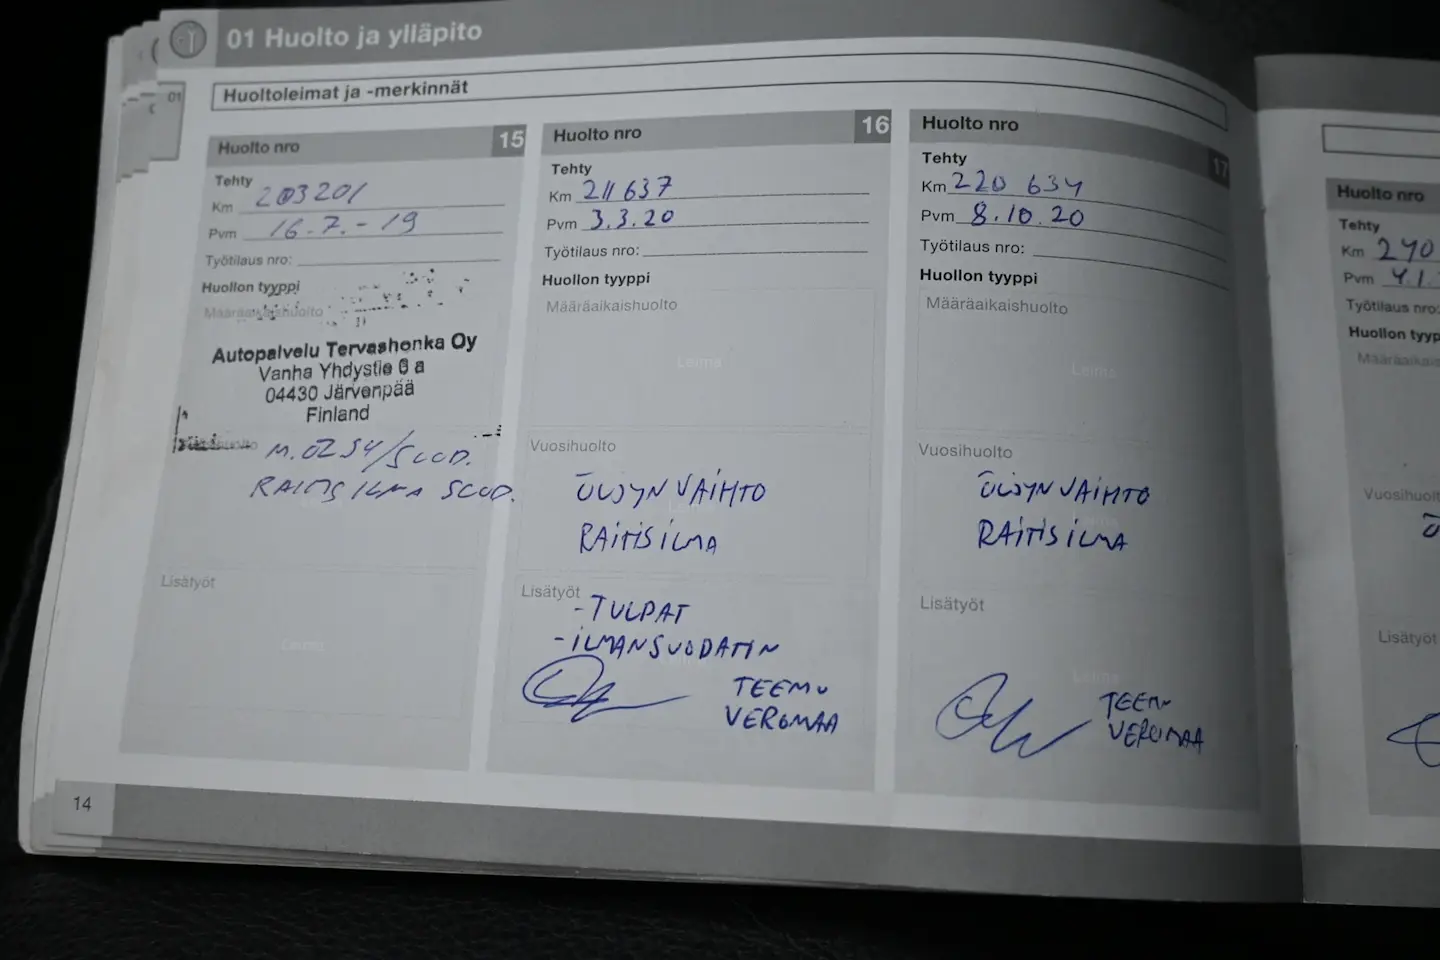 01 Huolto ja ylläpito
01
Huoltoleimat ja -merkinnät
Huolto nro 15
Tehty
Km 203201
Pvm 16.7.-19
Työtilaus nro:
Huollon tyyppi
Määräaikaishuolto
Autopalvelu Tervashonka Oy
Vanha Yhdystie 6 a
04430 Järvenpää
Finland
RAITIS ILMA SUOD.
Lisätyöt
Leima
Huolto nro 16
Tehty
Km 211 637
Pvm 3.3.20
Työtilaus nro:
Huollon tyyppi
Määräaikaishuolto
Leima
Vuosihuolto
ÖLJYN VAIHTO
RAITISILMA
Lisätyöt
- TULPAT
- ILMANSUODATIN
TEEMU
VEROMAA
Huolto nro 17
Tehty
Km 220 634
Pvm 8.10.20
Työtilaus nro:
Huollon tyyppi
Määräaikaishuolto
Leima
Vuosihuolto
ÖLJYN VAIHTO
RAITISILMA
Lisätyöt
Leima
TEEMU
VEROMAA
14
Huolto nro
Tehty
Km 240
Pvm 4.1.
Työtilaus nro:
Huollon tyyp
Määräaikais
Vuosihuolt
Ö
Lisätyöt